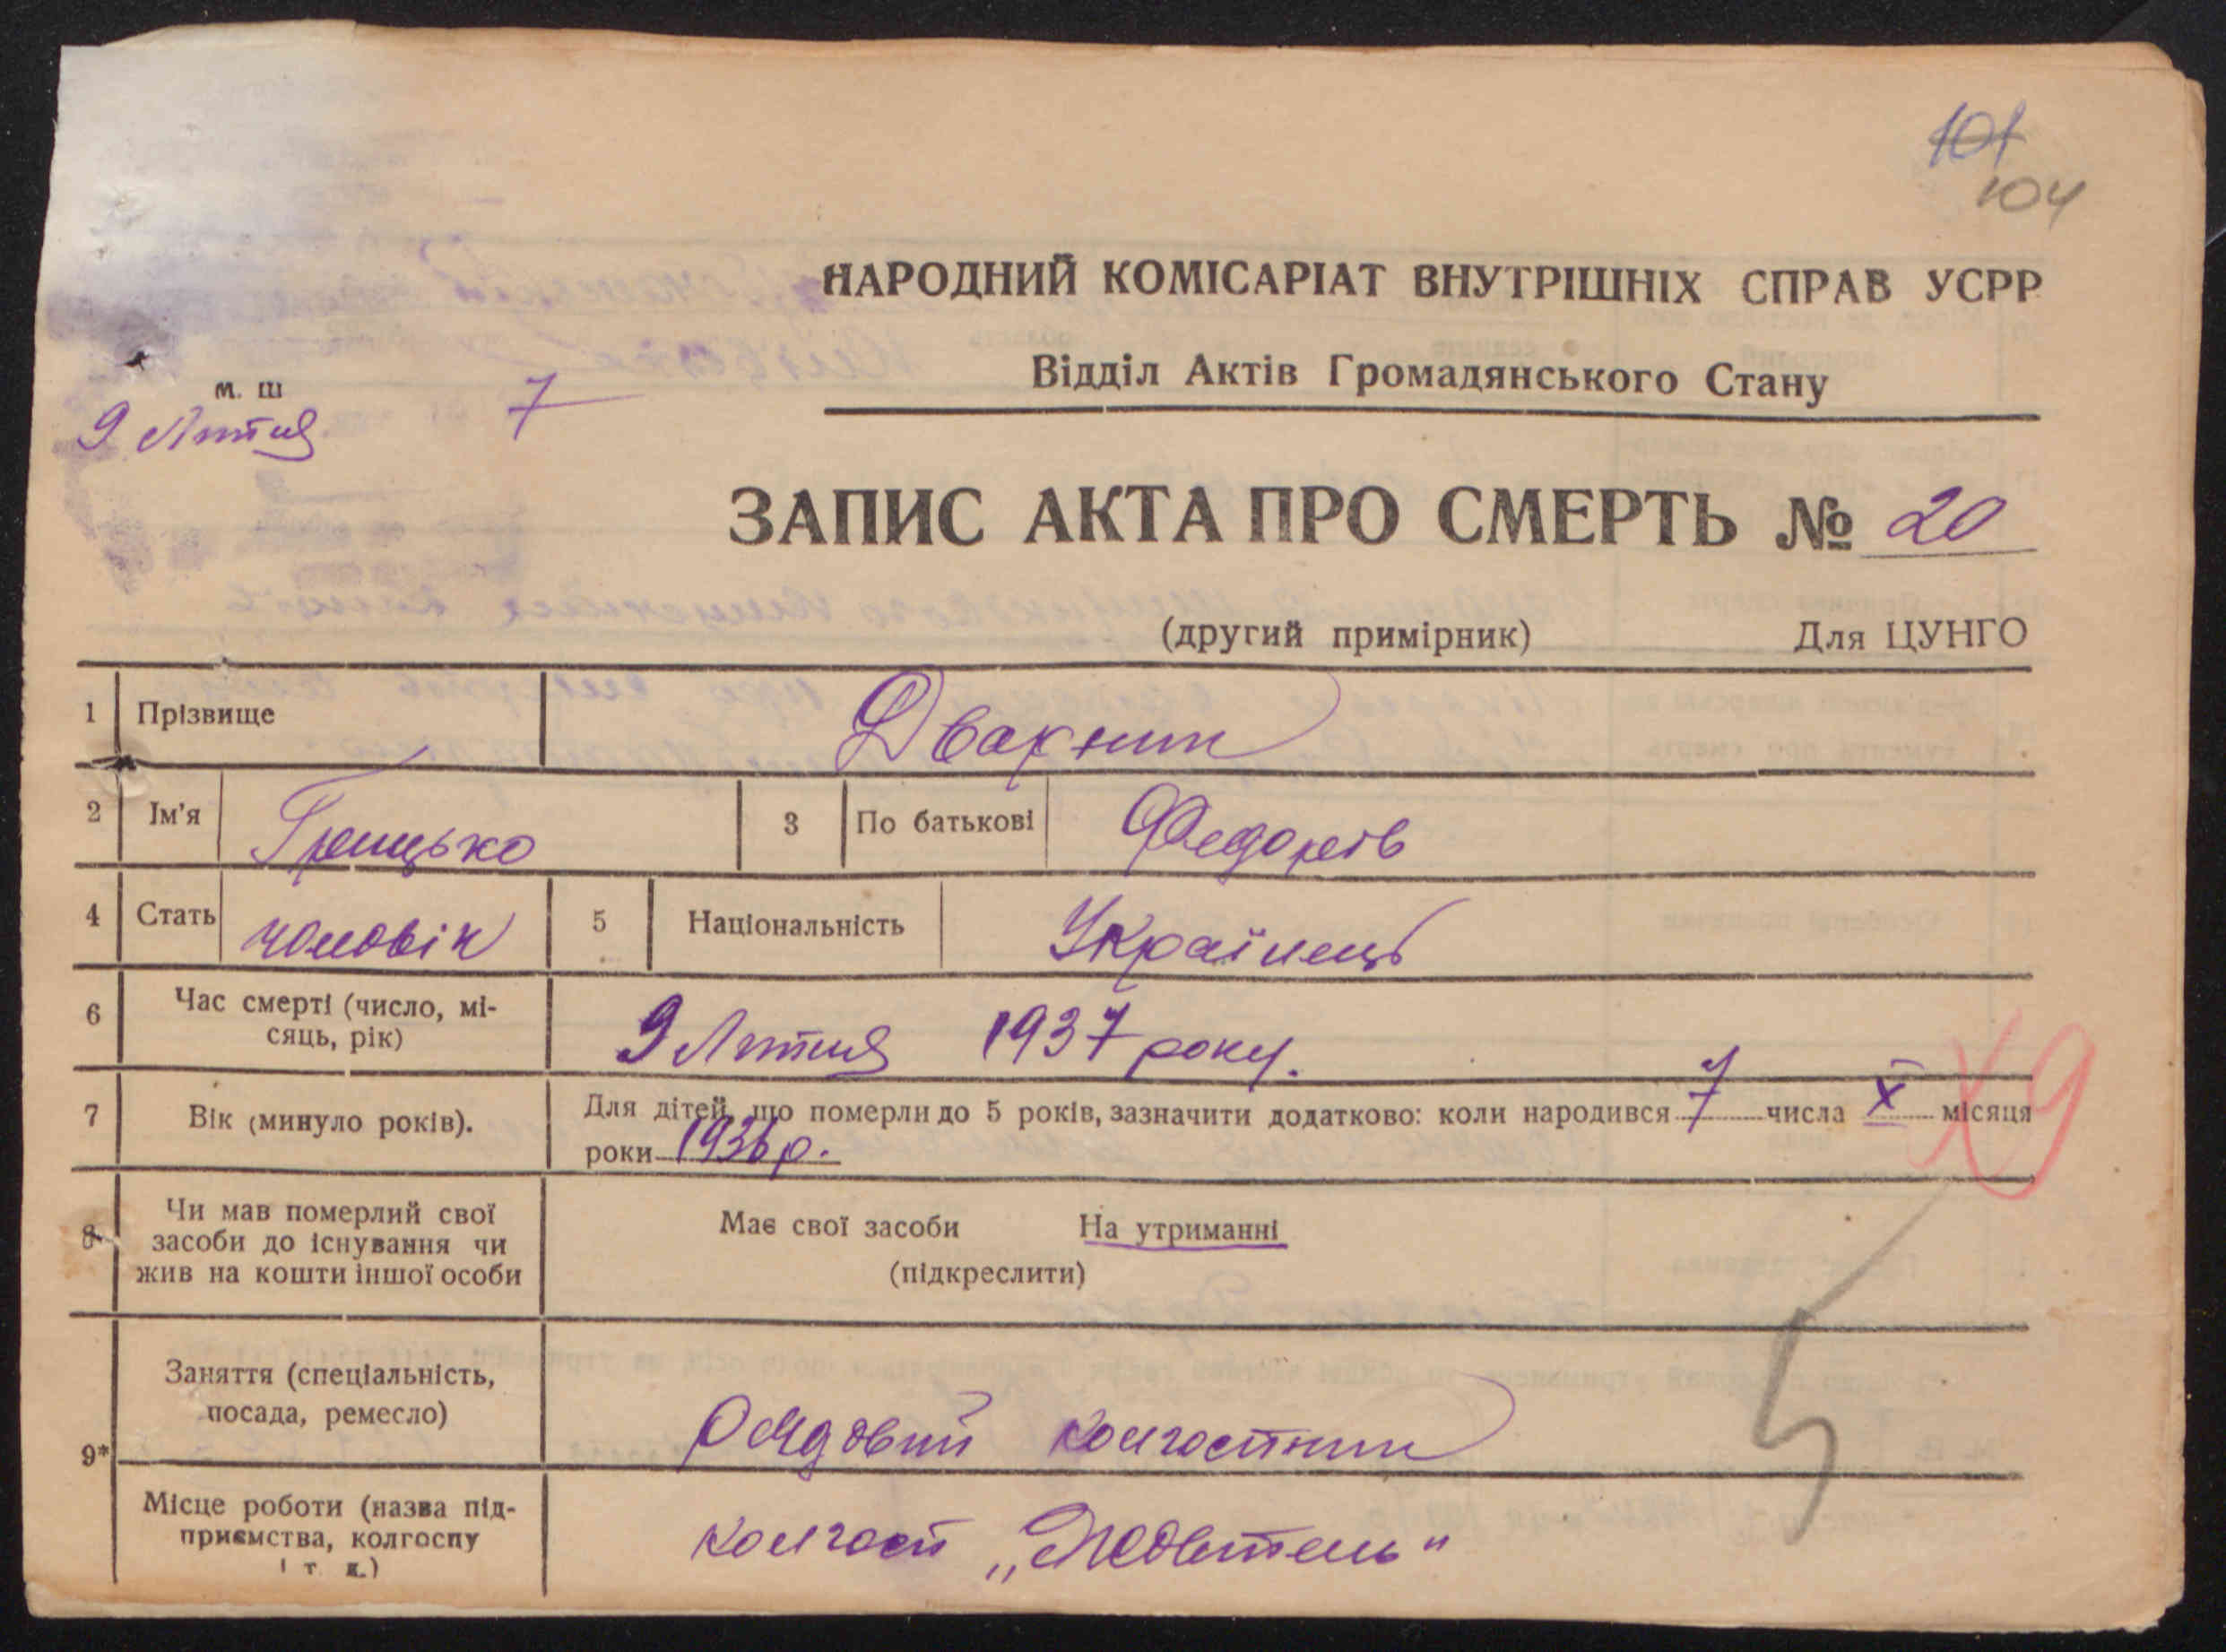 101
104
НАРОДНИЙ КОМІСАРІАТ ВНУТРІШНІХ СПРАВ УСРР
Відділ Актів Громадянського Стану
м. ш
9 Лютия 7
ЗАПИС АКТА ПРО СМЕРТЬ № 20
(другий примірник) Для ЦУНГО
1 Прізвище Двакнин
2 Ім'я Грицько 3 По батькові Федорів
4 Стать чоловік 5 Національність Українець
6 Час смерті (число, мі-
сяць, рік) 9 Лютия 1937 року.
7 Вік (минуло років). Для дітей, що померли до 5 років, зазначити додатково: коли народився 7 числа X місяця
роки 1936 р.
Х9
8 Чи мав померлий свої
засоби до існування чи
жив на кошти іншої особи
Має свої засоби На утриманні
(підкреслити)
9* Заняття (спеціальність,
посада, ремесло) Рядовий колгоспник
Місце роботи (назва під-
приємства, колгоспу
і т. д.) колгосп „Жовтень"